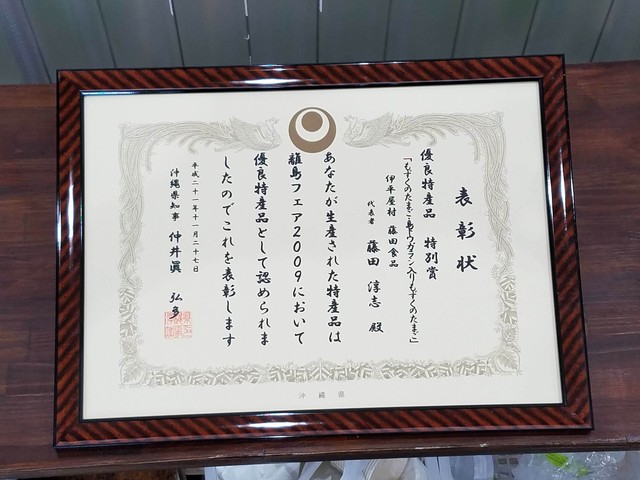 表彰状
優良特産品 特別賞
「もずくのたまご・島トウガラシ入りもずくのたまご」
伊平屋村 藤田食品
代表者 藤田 淳志 殿
あなたが生産された特産品は
離島フェア2009において
優良特産品として認められま
したのでこれを表彰します
平成二十一年十一月二十七日
沖縄県知事 仲井眞 弘多
沖縄県